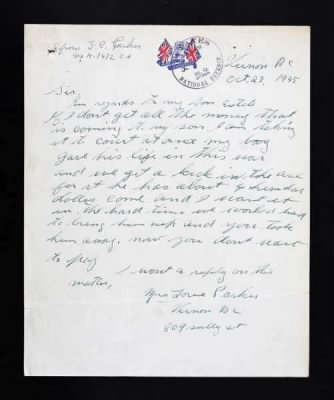 from T. C. Parker
Vernon BC
Oct. 23, 1945
NATIONAL DEFENCE
Sir,
In regards to my son Estate
if I don't get all the money that
is coming to my son, I am taking
it to court at once my boy
gave his life in this war
and we get a kick in the
for it he has about hundred
dollars come and I want it
in the hard time we worked hard
to bring him up and you took
him away. now you dont want
to pay
I want a reply on this
matter,
Mrs Parker
Vernon BC
809 st